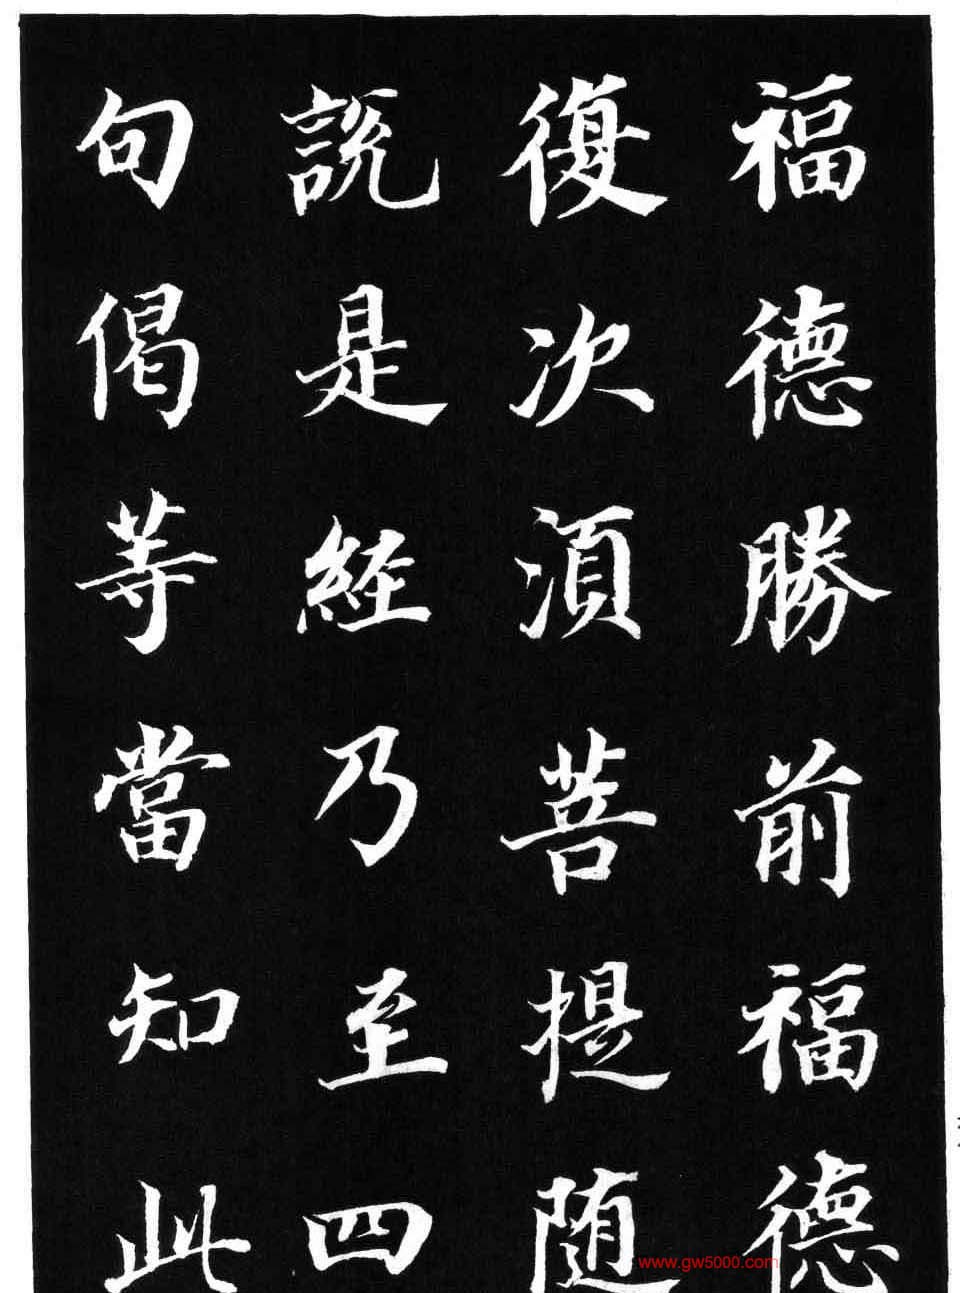 福德勝前福德
復次須菩提随
說是經乃至四
句偈等當知此
www.gw5000.com